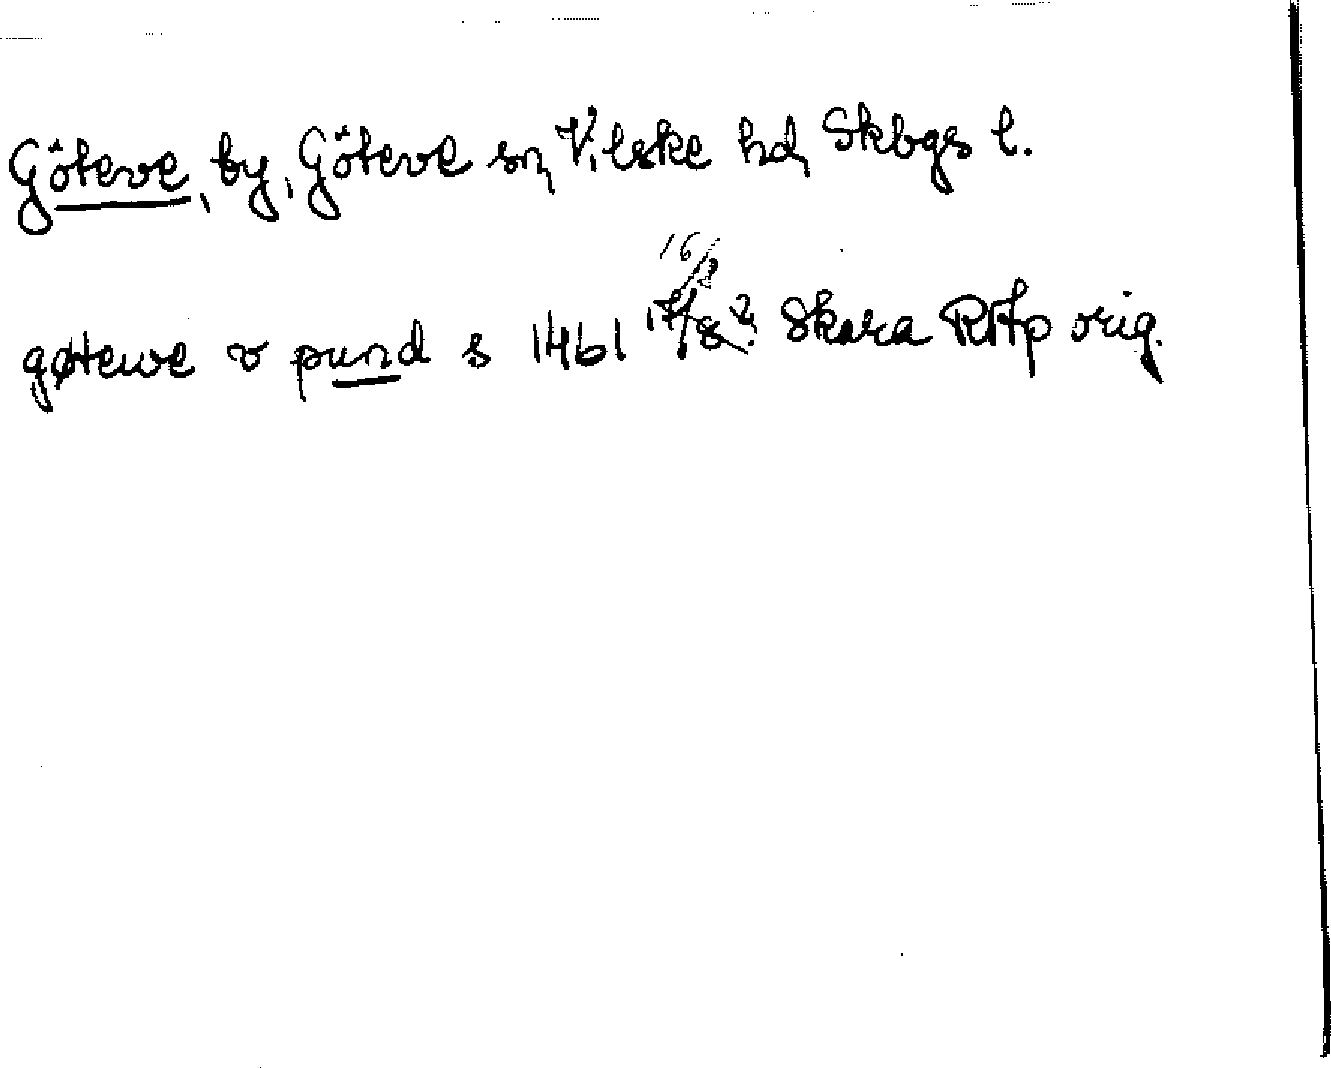 Göteve, by, Göteve sn, Vilske hd, Skbgs l.
16/8
gøtewe v pund s 1461 17/8? Skara RAp orig.